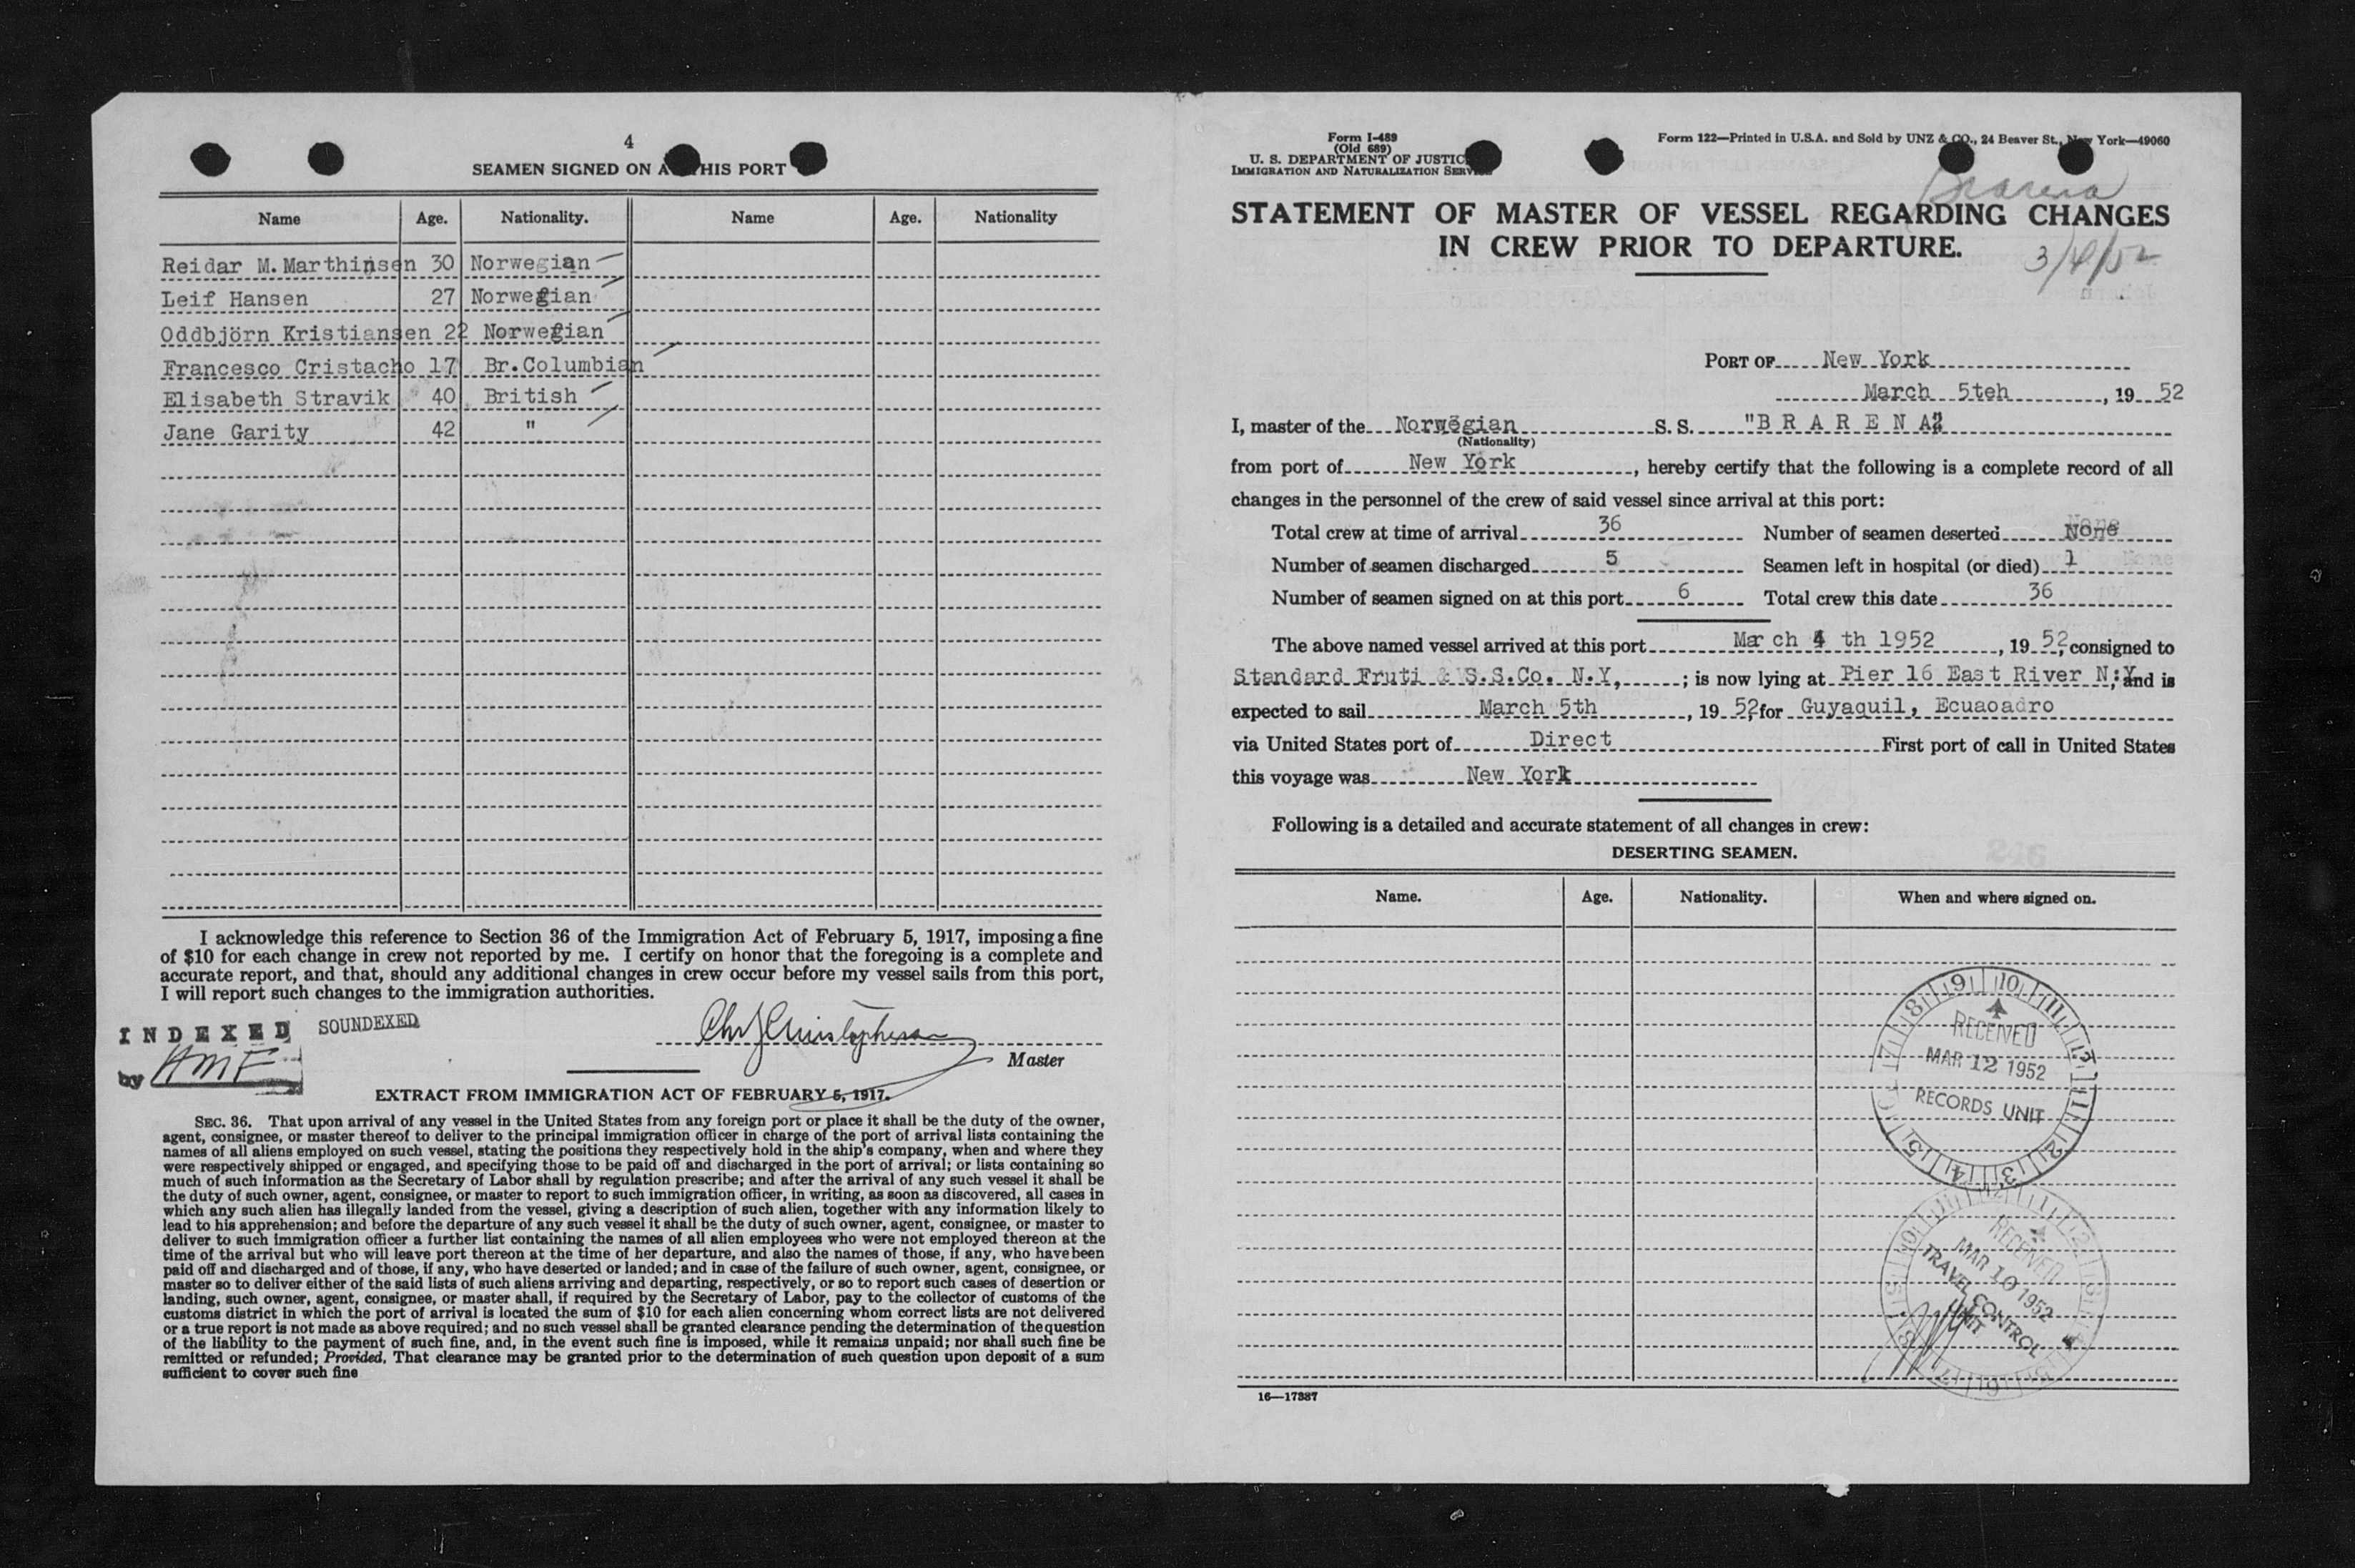 4
SEAMEN SIGNED ON A HIS PORT
Name Age. Nationality. Name Age. Nationality
Reidar M.Marthinsen 30 Norwegian
Leif Hansen 27 Norwegian
Oddbjörn Kristiansen 22 Norwegian
Francesco Cristacho 17 Br.Columbian
Elisabeth Stravik 40 British
Jane Garity 42 "
I acknowledge this reference to Section 36 of the Immigration Act of February 5, 1917, imposing a fine
of $10 for each change in crew not reported by me. I certify on honor that the foregoing is a complete and
accurate report, and that, should any additional changes in crew occur before my vessel sails from this port,
I will report such changes to the immigration authorities.
INDEXED SOUNDEXED
by HMF
Master
EXTRACT FROM IMMIGRATION ACT OF FEBRUARY 5, 1917.
SEC. 36. That upon arrival of any vessel in the United States from any foreign port or place it shall be the duty of the owner,
agent, consignee, or master thereof to deliver to the principal immigration officer in charge of the port of arrival lists containing the
names of all aliens employed on such vessel, stating the positions they respectively hold in the ship's company, when and where they
were respectively shipped or engaged, and specifying those to be paid off and discharged in the port of arrival; or lists containing so
much of such information as the Secretary of Labor shall by regulation prescribe; and after the arrival of any such vessel it shall be
the duty of such owner, agent, consignee, or master to report to such immigration officer, in writing, as soon as discovered, all cases in
which any such alien has illegally landed from the vessel, giving a description of such alien, together with any information likely to
lead to his apprehension; and before the departure of any such vessel it shall be the duty of such owner, agent, consignee, or master to
deliver to such immigration officer a further list containing the names of all alien employees who were not employed thereon at the
time of the arrival but who will leave port thereon at the time of her departure, and also the names of those, if any, who have been
paid off and discharged and of those, if any, who have deserted or landed; and in case of the failure of such owner, agent, consignee, or
master so to deliver either of the said lists of such aliens arriving and departing, respectively, or so to report such cases of desertion or
landing, such owner, agent, consignee, or master shall, if required by the Secretary of Labor, pay to the collector of customs of the
customs district in which the port of arrival is located the sum of $10 for each alien concerning whom correct lists are not delivered
or a true report is not made as above required; and no such vessel shall be granted clearance pending the determination of the question
of the liability to the payment of such fine, and, in the event such fine is imposed, while it remains unpaid; nor shall such fine be
remitted or refunded; Provided, That clearance may be granted prior to the determination of such question upon deposit of a sum
sufficient to cover such fine
Form I-489
(Old 689)
U. S. DEPARTMENT OF JUSTIC
IMMIGRATION AND NATURALIZATION SERV
Form 122—Printed in U.S.A. and Sold by UNZ & CO., 24 Beaver St., New York—49060
STATEMENT OF MASTER OF VESSEL REGARDING CHANGES
IN CREW PRIOR TO DEPARTURE.
3/4/52
PORT OF New York
March 5teh, 19 52
I, master of the Norwegian S. S. "B R A R E N A"
(Nationality)
from port of New York, hereby certify that the following is a complete record of all
changes in the personnel of the crew of said vessel since arrival at this port:
Total crew at time of arrival 36 Number of seamen deserted None
Number of seamen discharged 5 Seamen left in hospital (or died) 1
Number of seamen signed on at this port 6 Total crew this date 36
The above named vessel arrived at this port March 4 th 1952, 19 52, consigned to
Standard Fruti & S.S.Co. N.Y, ; is now lying at Pier 16 East River N:Y, and is
expected to sail March 5th, 19 52, for Guyaquil, Ecuaoadro
via United States port of Direct First port of call in United States
this voyage was New York
Following is a detailed and accurate statement of all changes in crew:
DESERTING SEAMEN.
Name. Age. Nationality. When and where signed on.
RECEIVED
MAR 12 1952
RECORDS UNIT
RECEIVED
MAR 10 1952
TRAVEL CONTROL
UNIT
16—17387